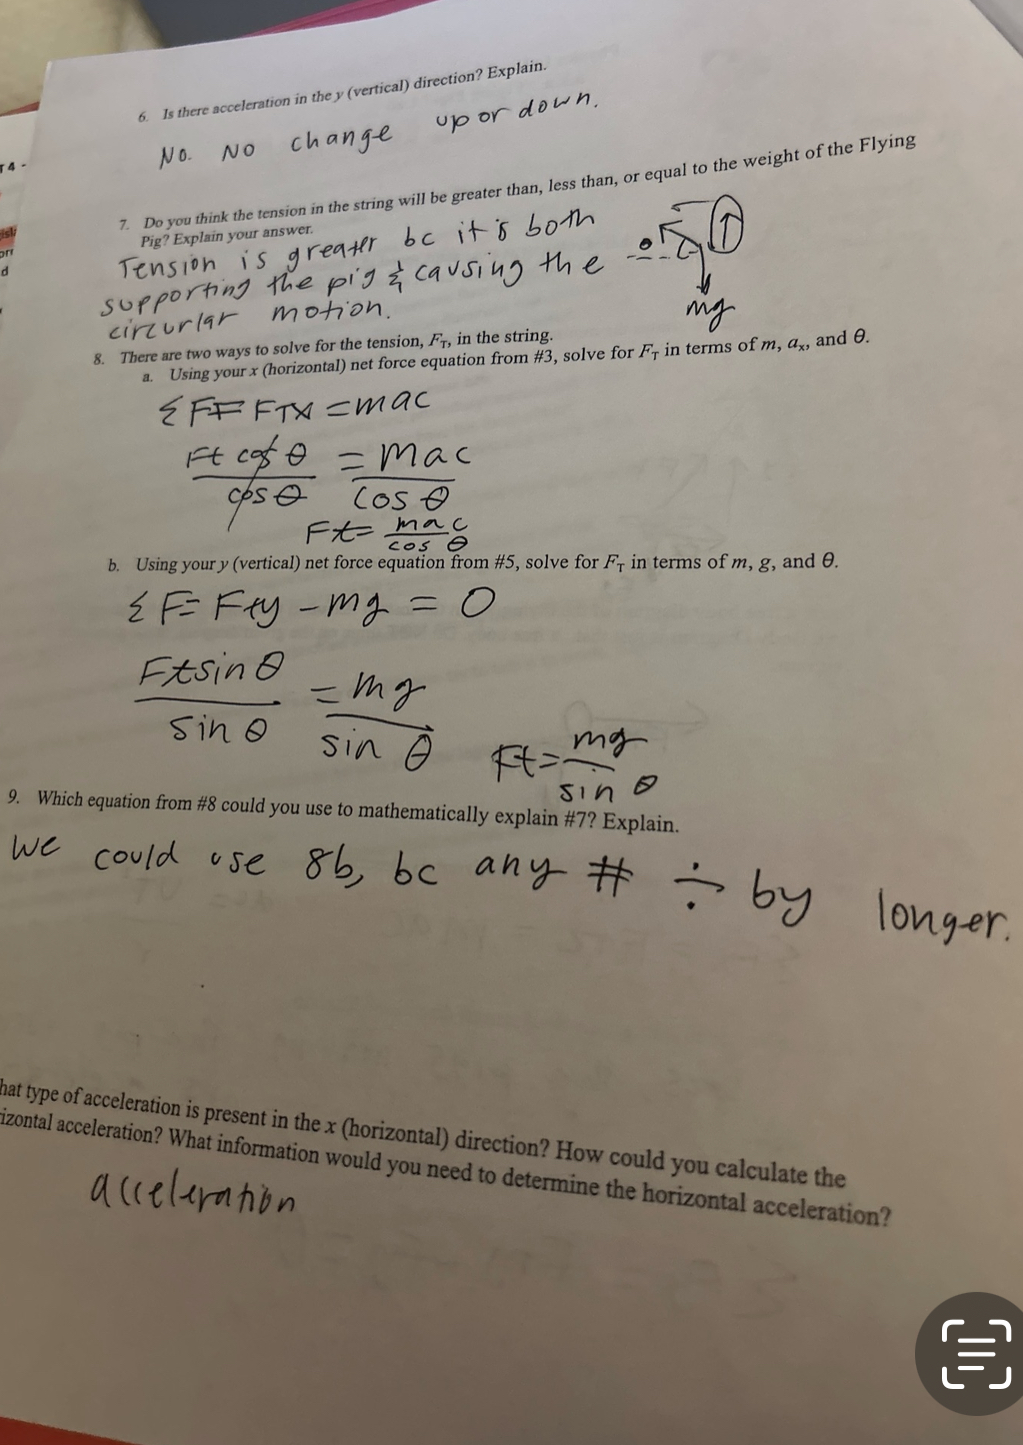 6. Is there acceleration in the y (vertical) direction? Explain.
No. No change up or down.
7. Do you think the tension in the string will be greater than, less than, or equal to the weight of the Flying
Pig? Explain your answer.
Tension is greater bc it's both
supporting the pig & causing the
circurlar motion.
mg
8. There are two ways to solve for the tension, F_T, in the string.
a. Using your x (horizontal) net force equation from #3, solve for F_T in terms of m, a_x, and θ.
ΣF= FTX = mac
Ft cos θ / cos θ = mac / cos θ
Ft= mac / cos θ
b. Using your y (vertical) net force equation from #5, solve for F_T in terms of m, g, and θ.
ΣF= Fty - mg = 0
Ft sin θ / sin θ = mg / sin θ
Ft= mg / sin θ
9. Which equation from #8 could you use to mathematically explain #7? Explain.
we could use 8b, bc any # ÷ by longer.
hat type of acceleration is present in the x (horizontal) direction? How could you calculate the
izontal acceleration? What information would you need to determine the horizontal acceleration?
acceleration